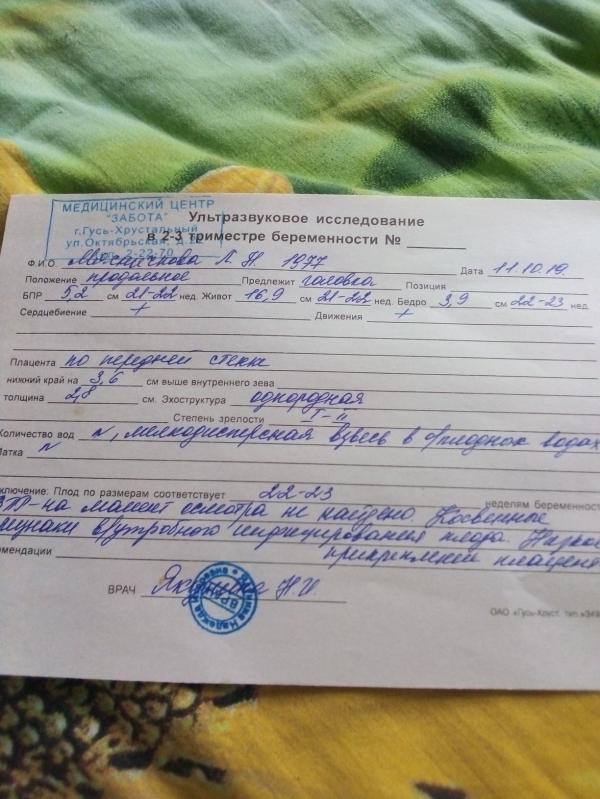 МЕДИЦИНСКИЙ ЦЕНТР
"ЗАБОТА"
г.Гусь-Хрустальный
ул.Октябрьская, д.
2-22-70
Ультразвуковое исследование
в 2-3 триместре беременности №
Ф.И.О. Л. Н. 1977 Дата 11.10.19.
Положение продольное Предлежит головка Позиция
БПР 5,2 см 21-22 нед. Живот 16,9 см 21-22 нед. Бедро 3,9 см 22-23 нед.
Сердцебиение + Движения +
Плацента по передней стенке
нижний край на 3,6 см выше внутреннего зева
толщина 2,8 см. Эхоструктура однородная
Степень зрелости I-II
Количество вод N, мелкодисперсная взвесь в околоплодных водах
Матка N
ключение: Плод по размерам соответствует 22-23 неделям беременнос
на момент осмотра не найдено. Косвенные
в/утробного инфицирования плода. Низкое
омендации прикрепление плацент
ВРАЧ Н.И.
ОАО «Гусь-Хруст. тип.»